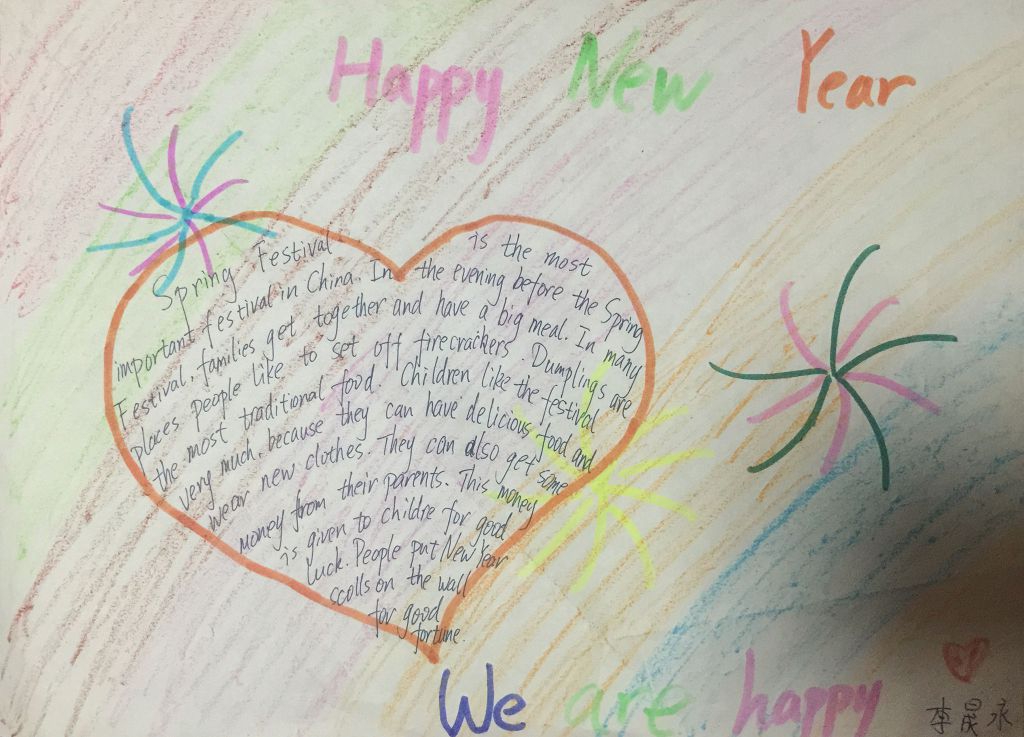 Happy New Year
Spring Festival is the most
important festival in China. In the evening before the Spring
Festival, families get together and have a big meal. In many
places people like to set off firecrackers. Dumplings are
the most traditional food Children like the festival
very much, because they can have delicious food and
wear new clothes. They can also get some
money from their parents. This money
is given to childre for good
luck. People put New Year
scolls on the wall
for good
fortune.
We are happy
李晟永